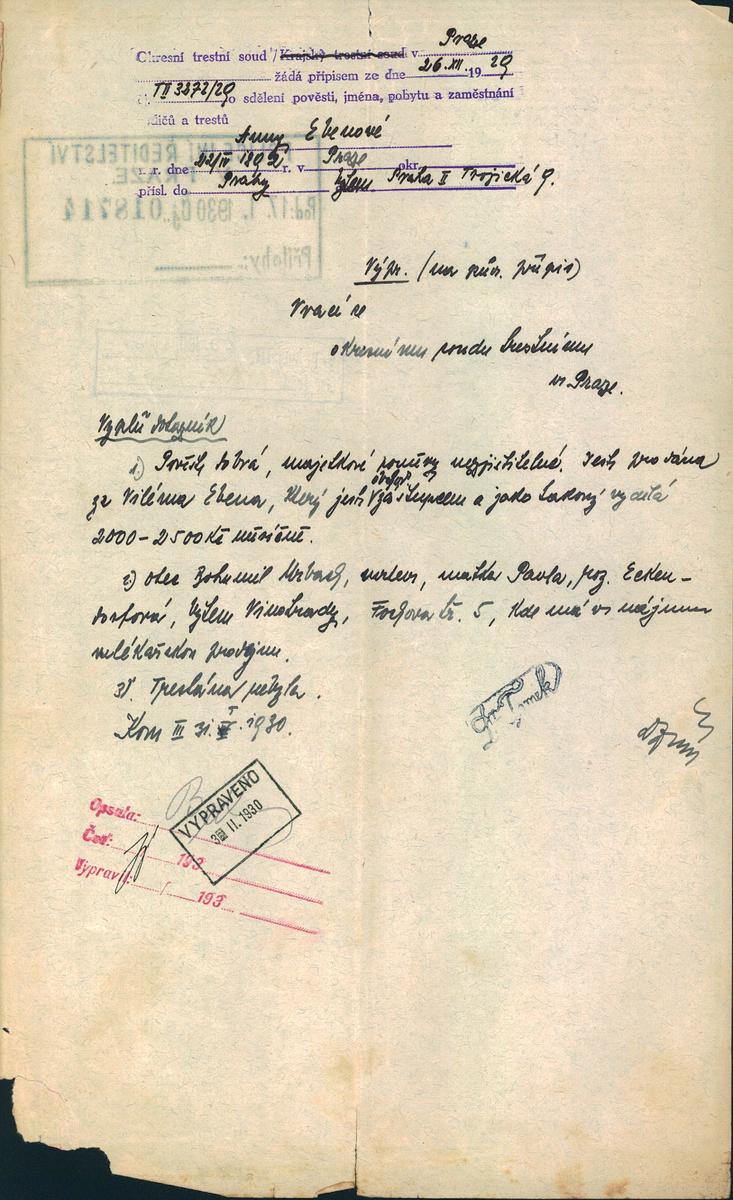 Okresní trestní soud / Krajský trestní soud v Praze
žádá přípisem ze dne 26.XII. 1929
TII 3272/29 o sdělení pověsti, jména, pobytu a zaměstnání
rodičů a trestů
Anny Ebenové
n. r. dne 22/IV 1892 r. v Praze okr.
přísl. do Prahy bytem Praha II Trojická 9.
POLICEJNÍ ŘEDITELSTVÍ
V PRAZE
Pod: 17. 1. 1930 Čj. 018714
Přílohy:
Výpr. (na pův. přípis)
Vrací se
okresnímu soudu trestnímu
v Praze.
Vyplň dotazník
1) Pověsti dobrá, majetkové poměry nezjistitelné. Jest provdána
za Viléma Ebena, který jest obch. zástupcem a jako takový vydělá
2000–2500 Kč měsíčně.
2) otec Bohumil, matka Pavla, roz. Ecken-
dorfová, bytem Vinohrady, Fochova tř. 5, kde má v nájmu
mlékařskou prodejnu.
3). Trestána nebyla.
Kom III 31. I. 1930.
Opsala:
Čet: 193
Vypravil: / 193
VYPRAVENO
3 II. 1930